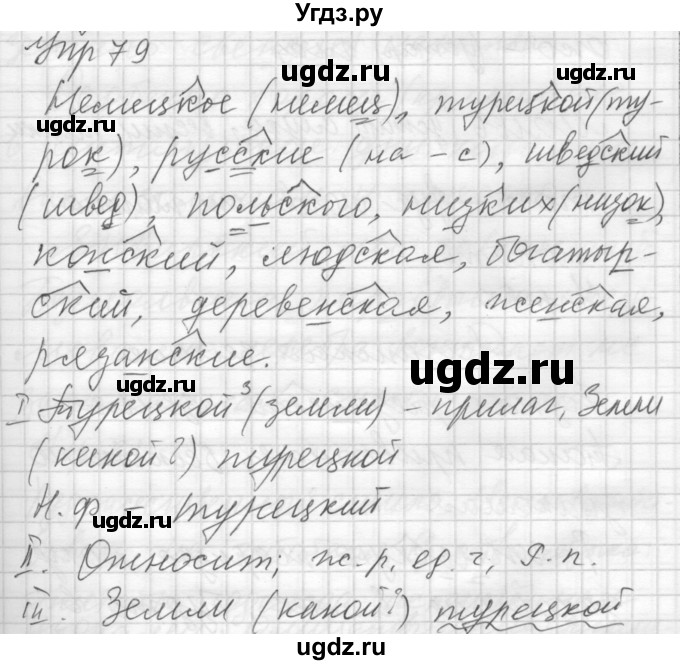 Угдз.ру
Упр 79
ugdz.ru
Немецкое (немец), турецкой (ту-
ugdz.ru
рок), русские (на -с), шведский
(швед), польского, низких (низок),
ugdz.ru
конский, людская, богатыр-
ский, деревенская, женская,
рязанские.
ugdz.ru
ugdz.ru
I Турецкой³ (земли) – прилаг, Земли
(какой?) турецкой
Н.ф – турецкий
ugdz.ru
II. Относит; ж.р, ед.ч, Р.п.
III. Земли (какой?) турецкой
ugdz.ru